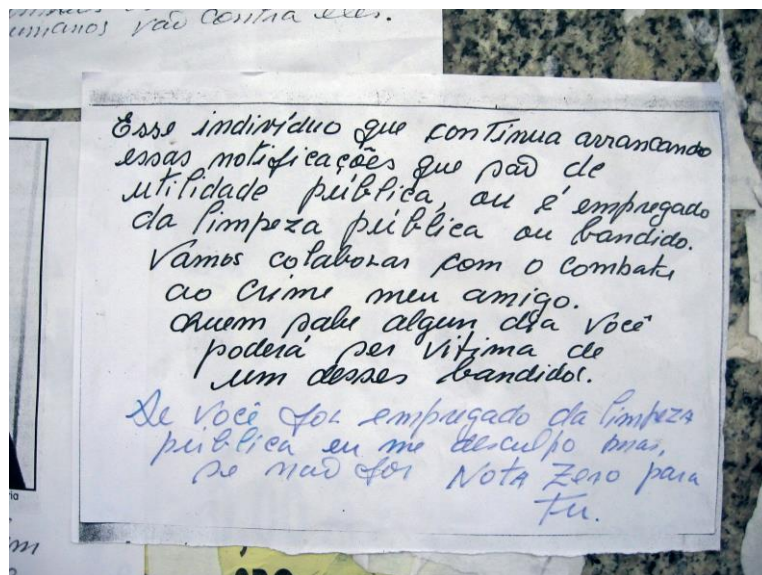 umanos vão contra eles.
Esse indivíduo que continua arrancando
essas notificações que são de
utilidade pública, ou é empregado
da limpeza pública ou bandido.
Vamos colaborar com o combate
ao crime meu amigo.
Quem sabe algun dia você
poderá ser vitima de
um desses bandidos.
Se você for empregado da limpeza
pública eu me desculpo mas,
se não for Nota Zero para
Tu.